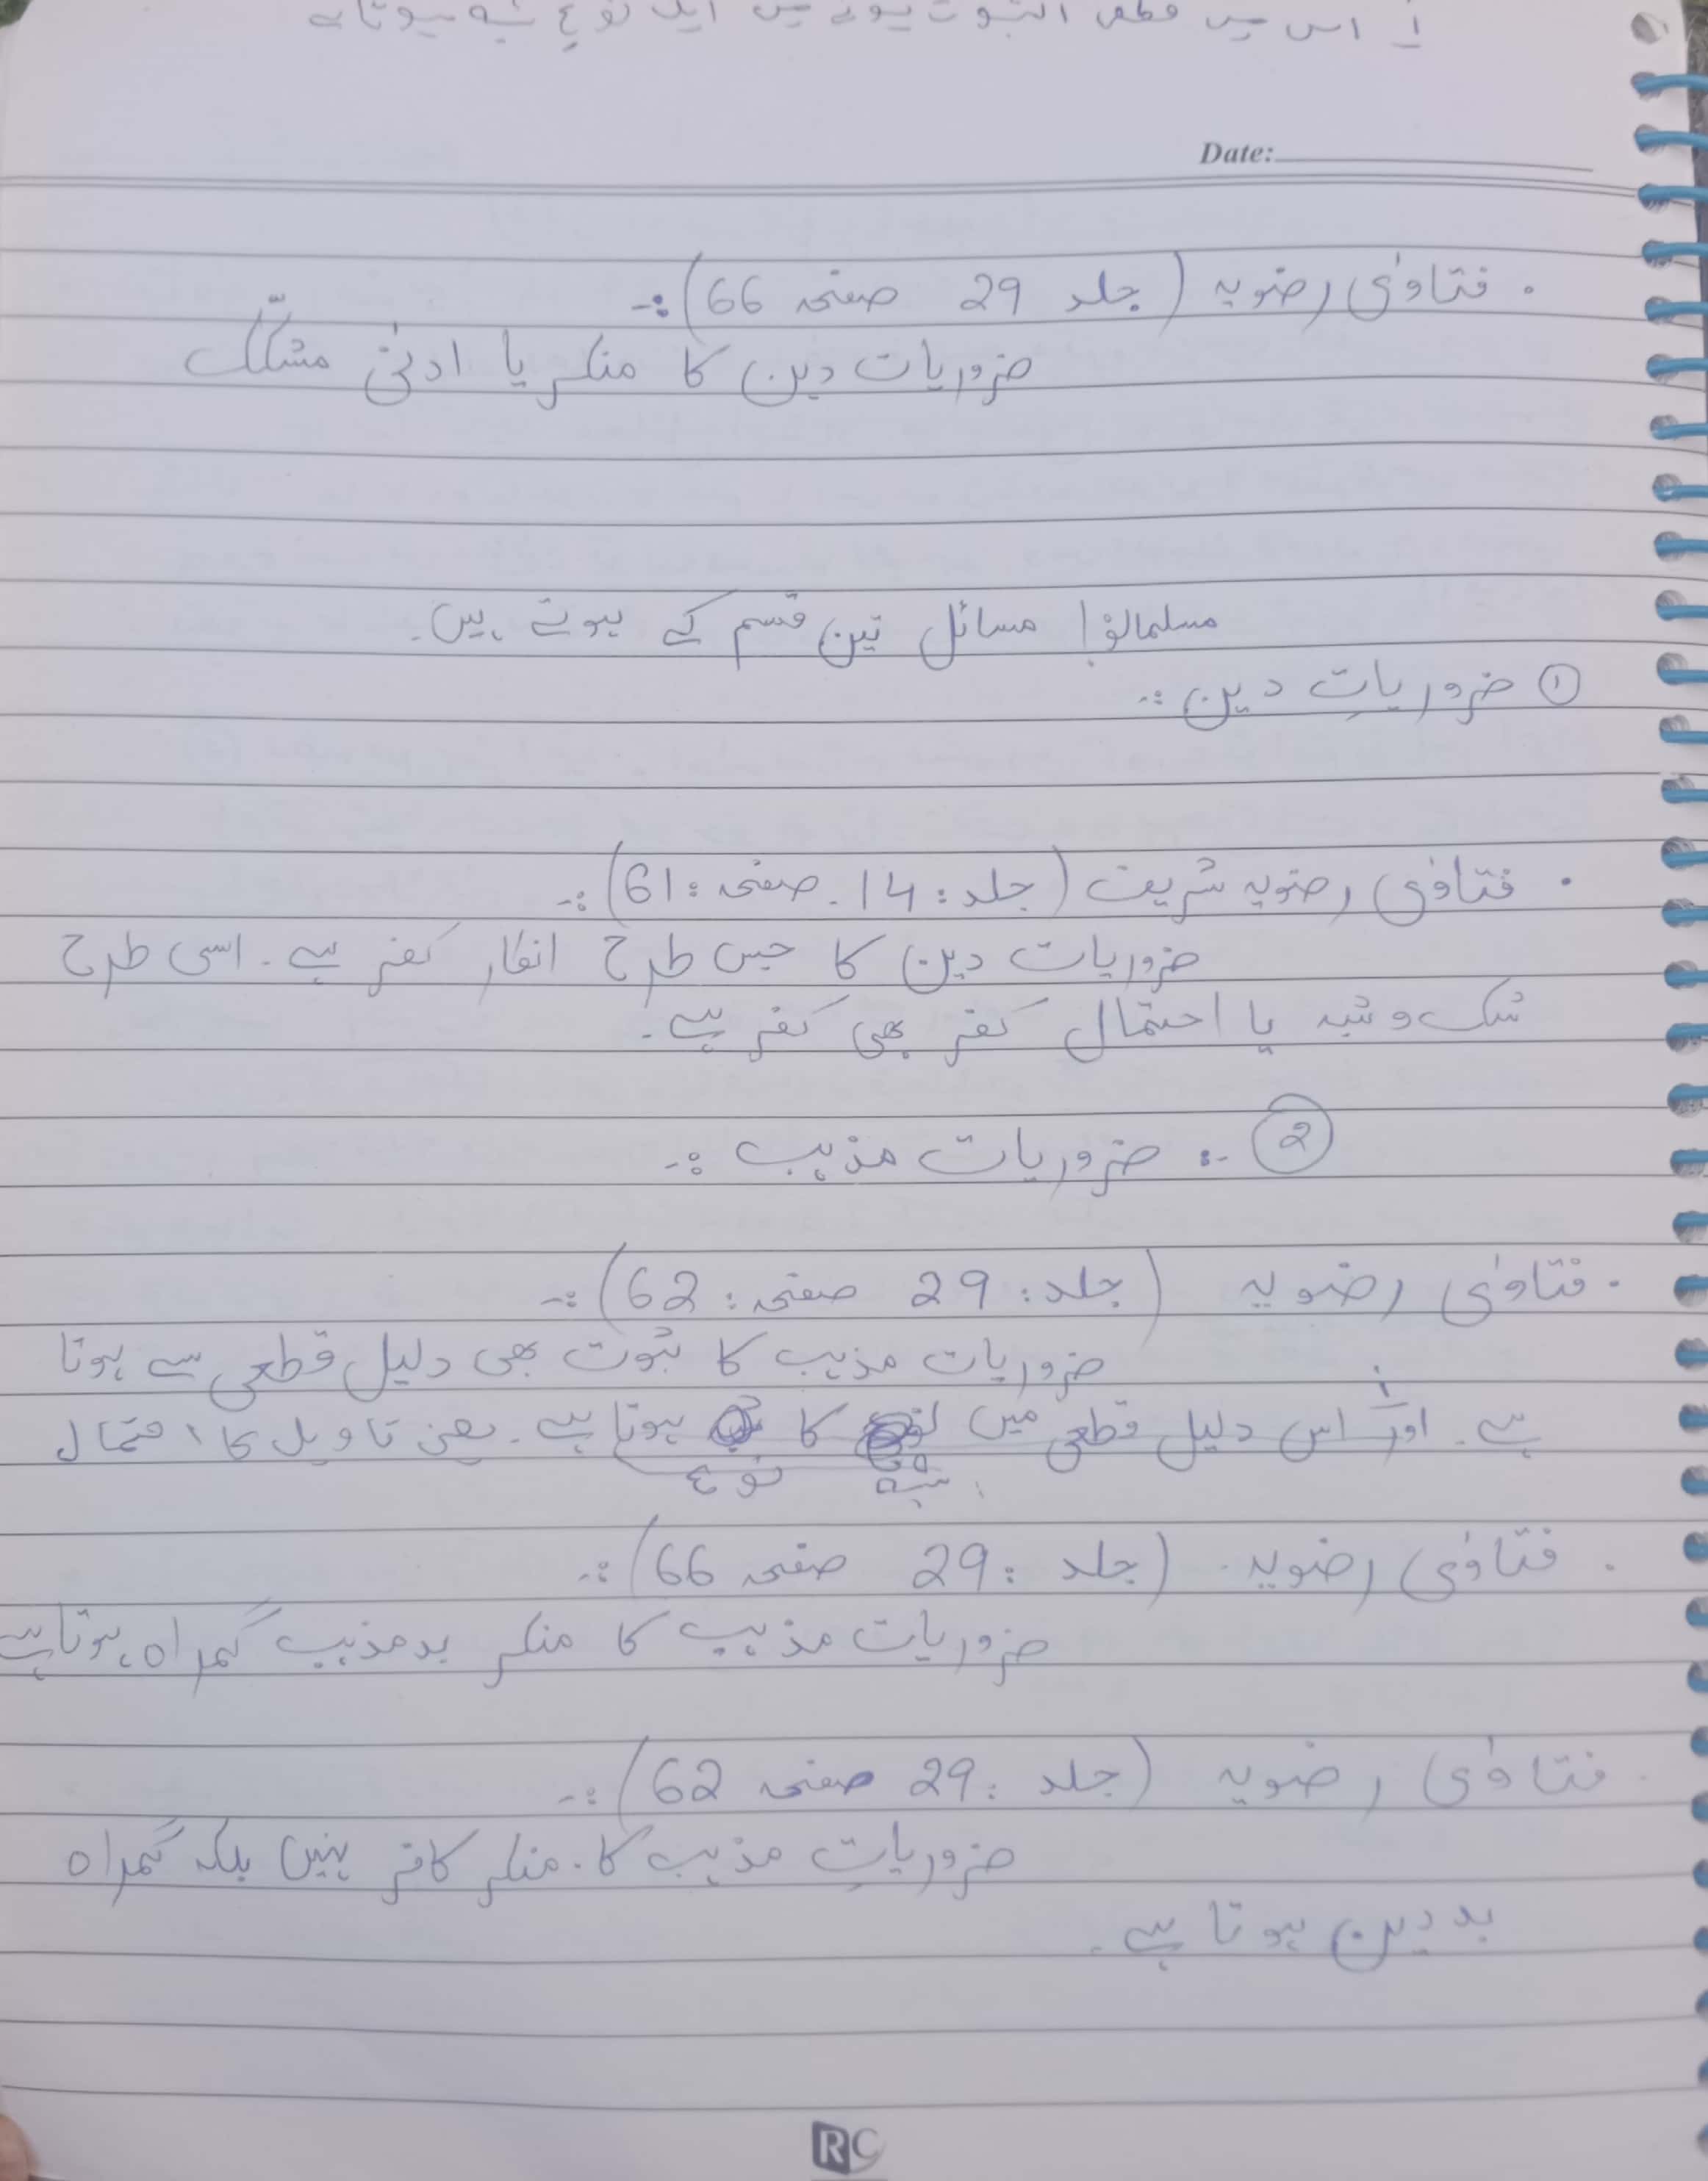 أ اس میں قطعی الثبوت ہونے میں ایک نوع شبہ ہوتا ہے
Date:
۔ فتاوٰی رضویہ (جلد 29 صفحہ 66):۔
ضروریات دین کا منکر یا ادنیٰ مشکّک
مسلمانوں! مسائل تین قسم کے ہوتے ہیں۔
① ضروریاتِ دین :۔
۔ فتاوٰی رضویہ شریف (جلد: 14۔ صفحہ: 61):۔
ضروریات دین کا جس طرح انکار کفر ہے۔ اسی طرح
شک و شبہ یا احتمال کفر بھی کفر ہے۔
② :۔ ضروریات مذہب :۔
۔ فتاوٰی رضویہ (جلد: 29 صفحہ: 62):۔
ضروریات مذہب کا ثبوت بھی دلیل قطعی سے ہوتا
ہے۔ اور أ اس دلیل قطعی میں کا ہوتا ہے۔ یعنی تاویل کا احتمال
شبہ نوع
۔ فتاوٰی رضویہ (جلد: 29 صفحہ 66):۔
ضروریات مذہب کا منکر بدمذہب گمراہ ہوتا ہے
۔ فتاوٰی رضویہ (جلد: 29 صفحہ 62):۔
ضروریاتِ مذہب کا منکر کافر نہیں بلکہ گمراہ
بددین ہوتا ہے۔
RC